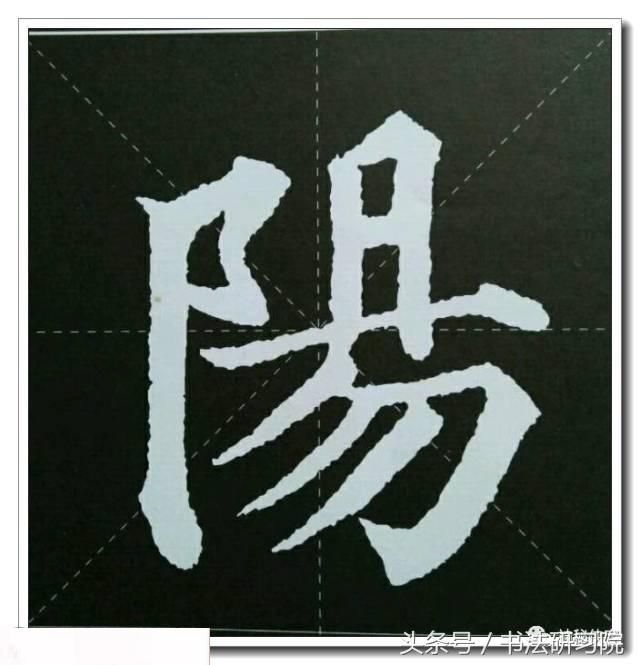 陽
头条号 / 书法研习院